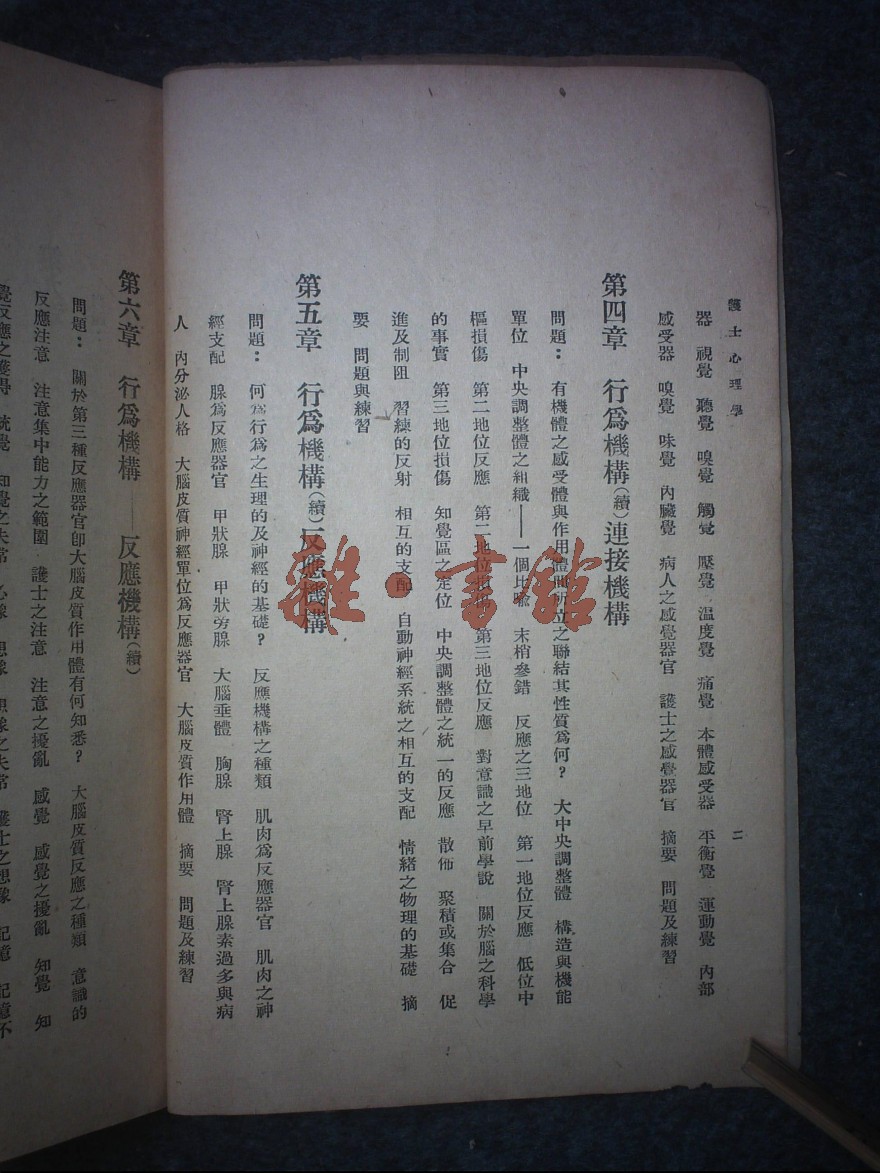 護士心理學
二
器　視覺　聽覺　嗅覺　觸覺　壓覺　温度覺　痛覺　本體感受器　平衡覺　運動覺　內部
感受器　嗅覺　味覺　內臟覺　病人之感覺器官　護士之感覺器官　摘要　問題及練習
第四章　行爲機構(續)連接機構
問題：　有機體之感受體與作用體間所立之聯結其性質爲何？　大中央調整體　構造與機能
單位　中央調整體之組織——一個比喩　末梢參錯　反應之三地位　第一地位反應　低位中
樞損傷　第二地位反應　第二地位損傷　第三地位反應　對意識之早前學說　關於腦之科學
的事實　第三地位損傷　知覺區之定位　中央調整體之統一的反應　散佈　聚積或集合　促
進及制阻　習練的反射　相互的支配　自動神經系統之相互的支配　情緒之物理的基礎　摘
要　問題與練習
第五章　行爲機構(續)反應機構
問題：　何爲行爲之生理的及神經的基礎？　反應機構之種類　肌肉爲反應器官　肌肉之神
經支配　腺爲反應器官　甲狀腺　甲狀旁腺　大腦垂體　胸腺　腎上腺　腎上腺素過多與病
人　內分泌人格　大腦皮質神經單位爲反應器官　大腦皮質作用體　摘要　問題及練習
第六章　行爲機構——反應機構(續)
問題：　關於第三種反應器官卽大腦皮質作用體有何知悉？　大腦皮質反應之種類　意識的
反應注意　注意集中能力之範圍　護士之注意　注意之擾亂　感覺　感覺之擾亂　知覺　知
覺反應之獲得　錯覺　知覺之失常　心像　想像　想像之失常　護士之想像　記憶　記憶不
雜·書館